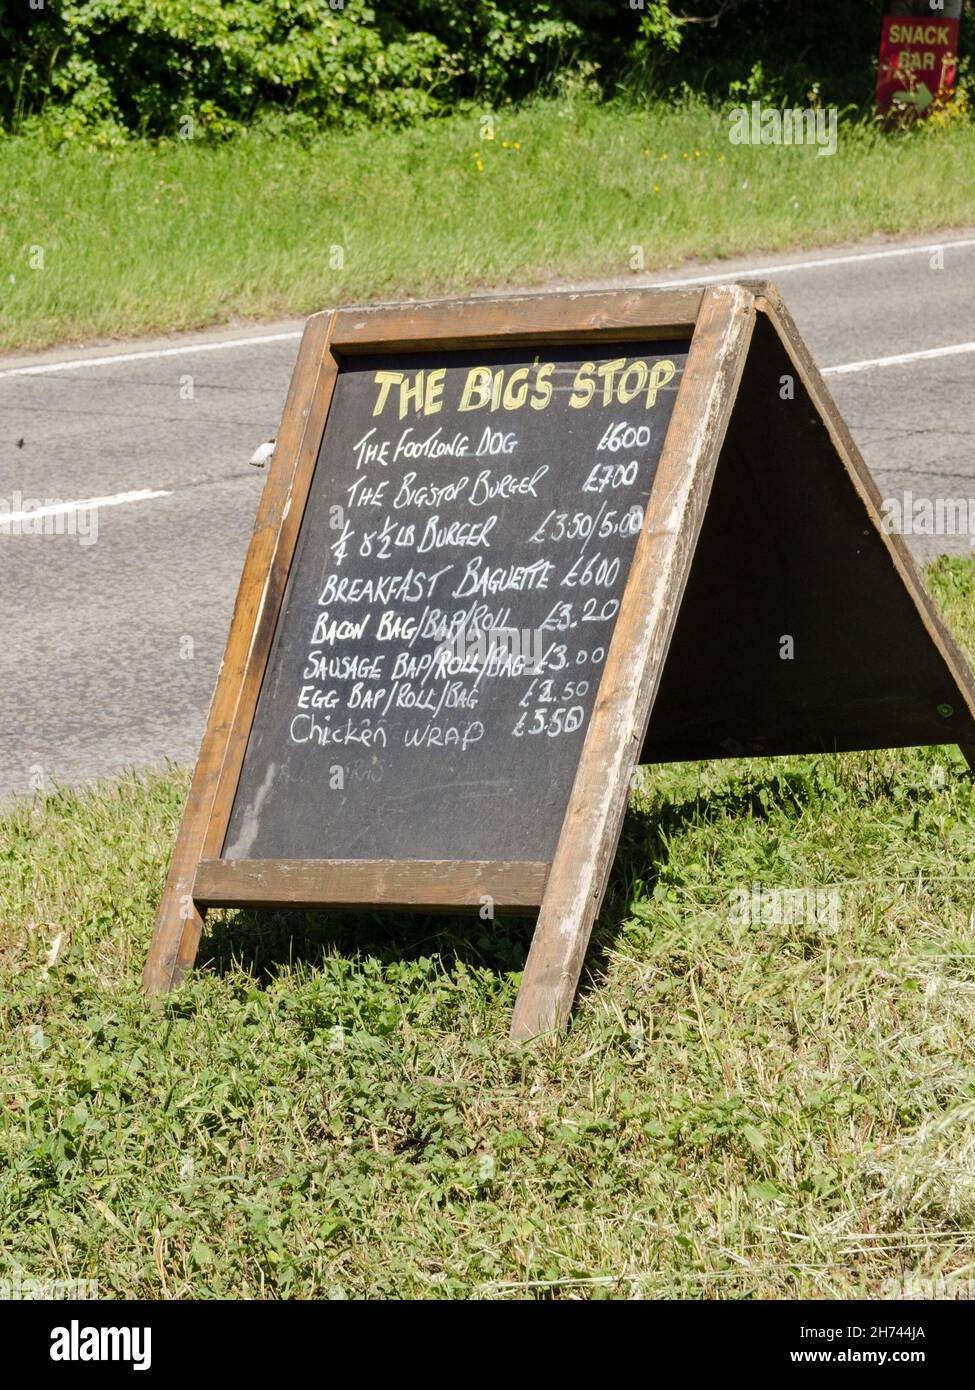 SNACK
BAR
THE BIG'S STOP
THE FOOTLONG DOG £600
THE BIG'STOP BURGER £7.00
¼ & ½ LB BURGER £3.50/5.00
BREAKFAST BAGUETTE £600
BACON BAG/BAP/ROLL £3.20
SAUSAGE BAP/ROLL/BAG £3.00
EGG BAP/ROLL/BAG £2.50
Chicken WRAP £5.50
alamy
Image ID: 2H744JA
www.alamy.com